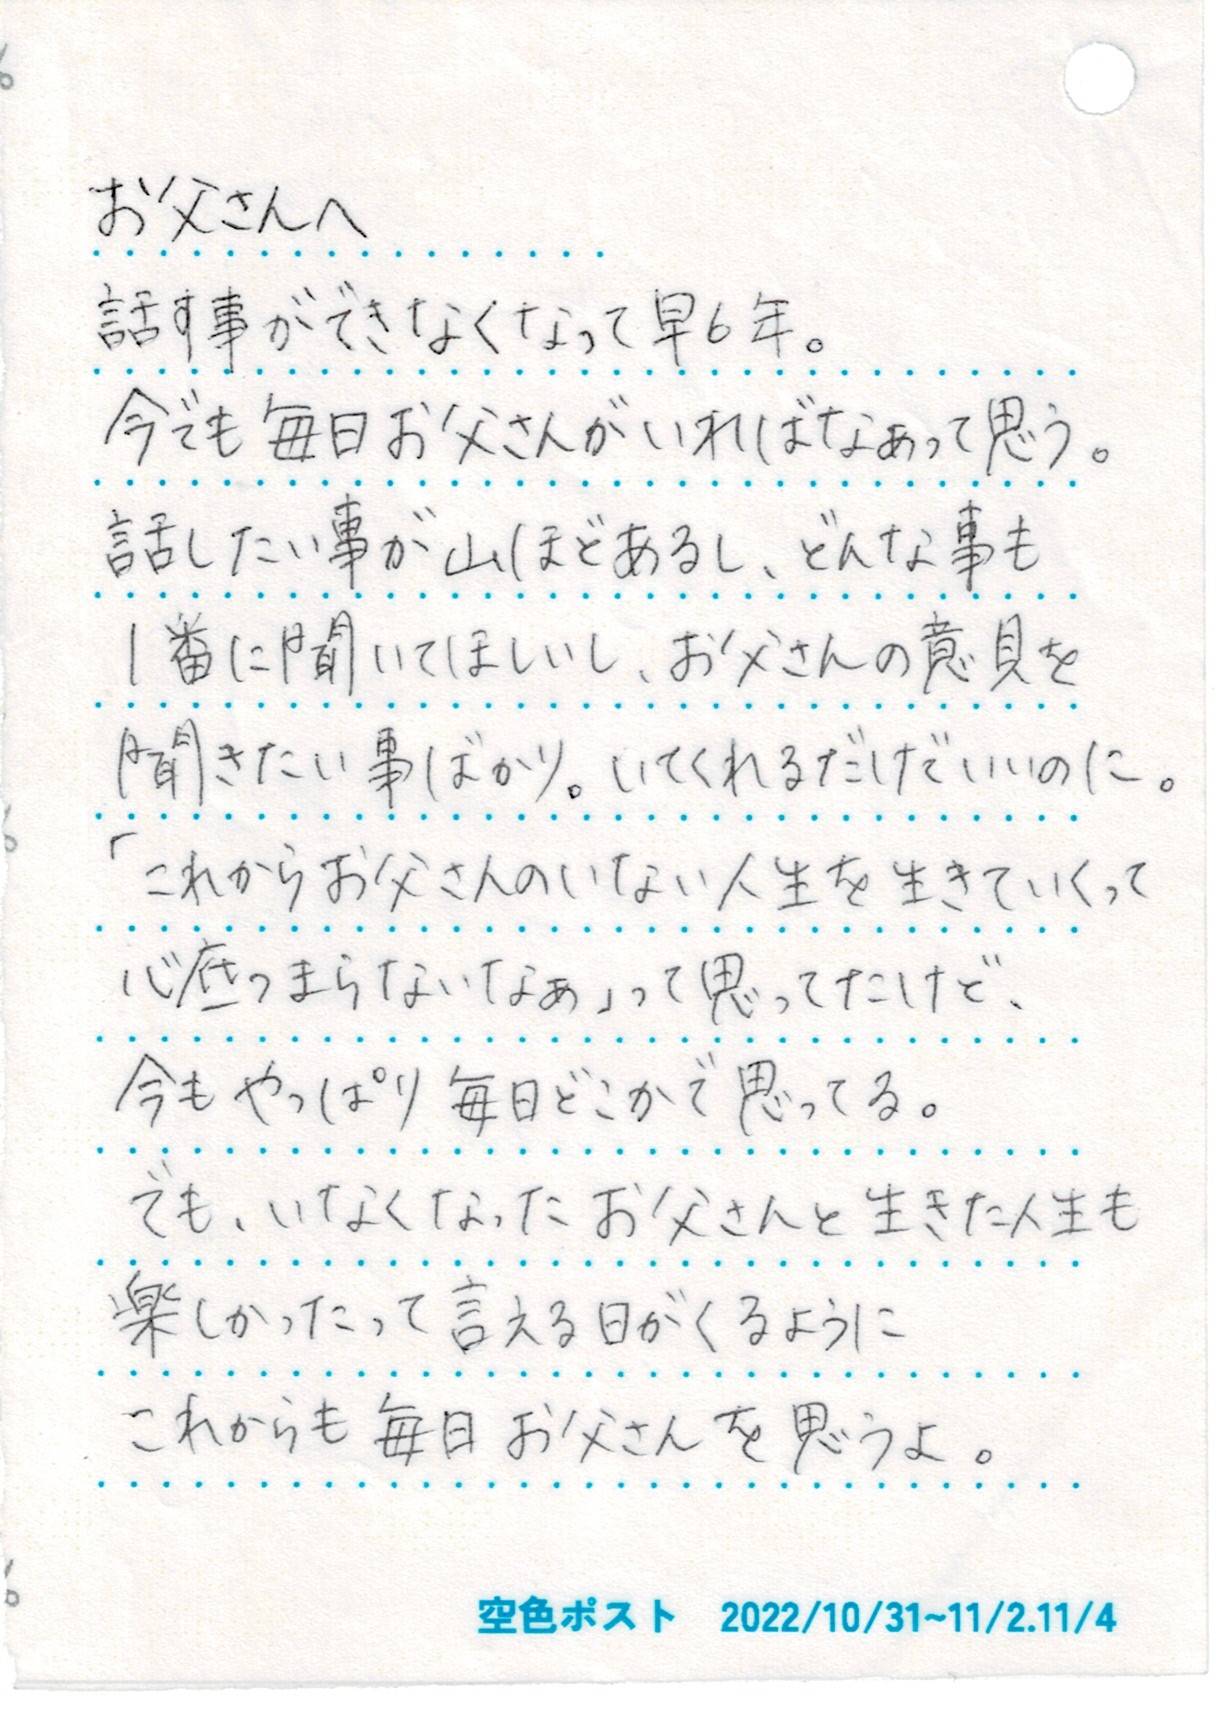 お父さんへ
話す事ができなくなって早6年。
今でも毎日お父さんがいればなぁって思う。
話したい事が山ほどあるし、どんな事も
1番に聞いてほしいし、お父さんの意見を
聞きたい事ばかり。いてくれるだけでいいのに。
「これからお父さんのいない人生を生きていくって
心底つまらないなぁ」って思ってたけど、
今もやっぱり毎日どこかで思ってる。
でも、いなくなったお父さんと生きた人生も
楽しかったって言える日がくるように
これからも毎日お父さんを思うよ。
空色ポスト 2022/10/31~11/2.11/4